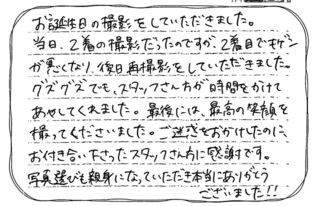 お誕生日の撮影をしていただきました。
当日、2着の撮影だったのですが、2着目でキゲン
が悪くなり、後日再撮影をしていただきました。
グズグズでも、スタッフさん方が時間をかけて
あやしてくれました。最後には、最高の笑顔を
撮ってくださいました。ご迷惑をおかけしたのに、
お付き合い下さったスタッフさん方に感謝です。
写真選びも親身になっていただき本当にありがとう
ございました!!